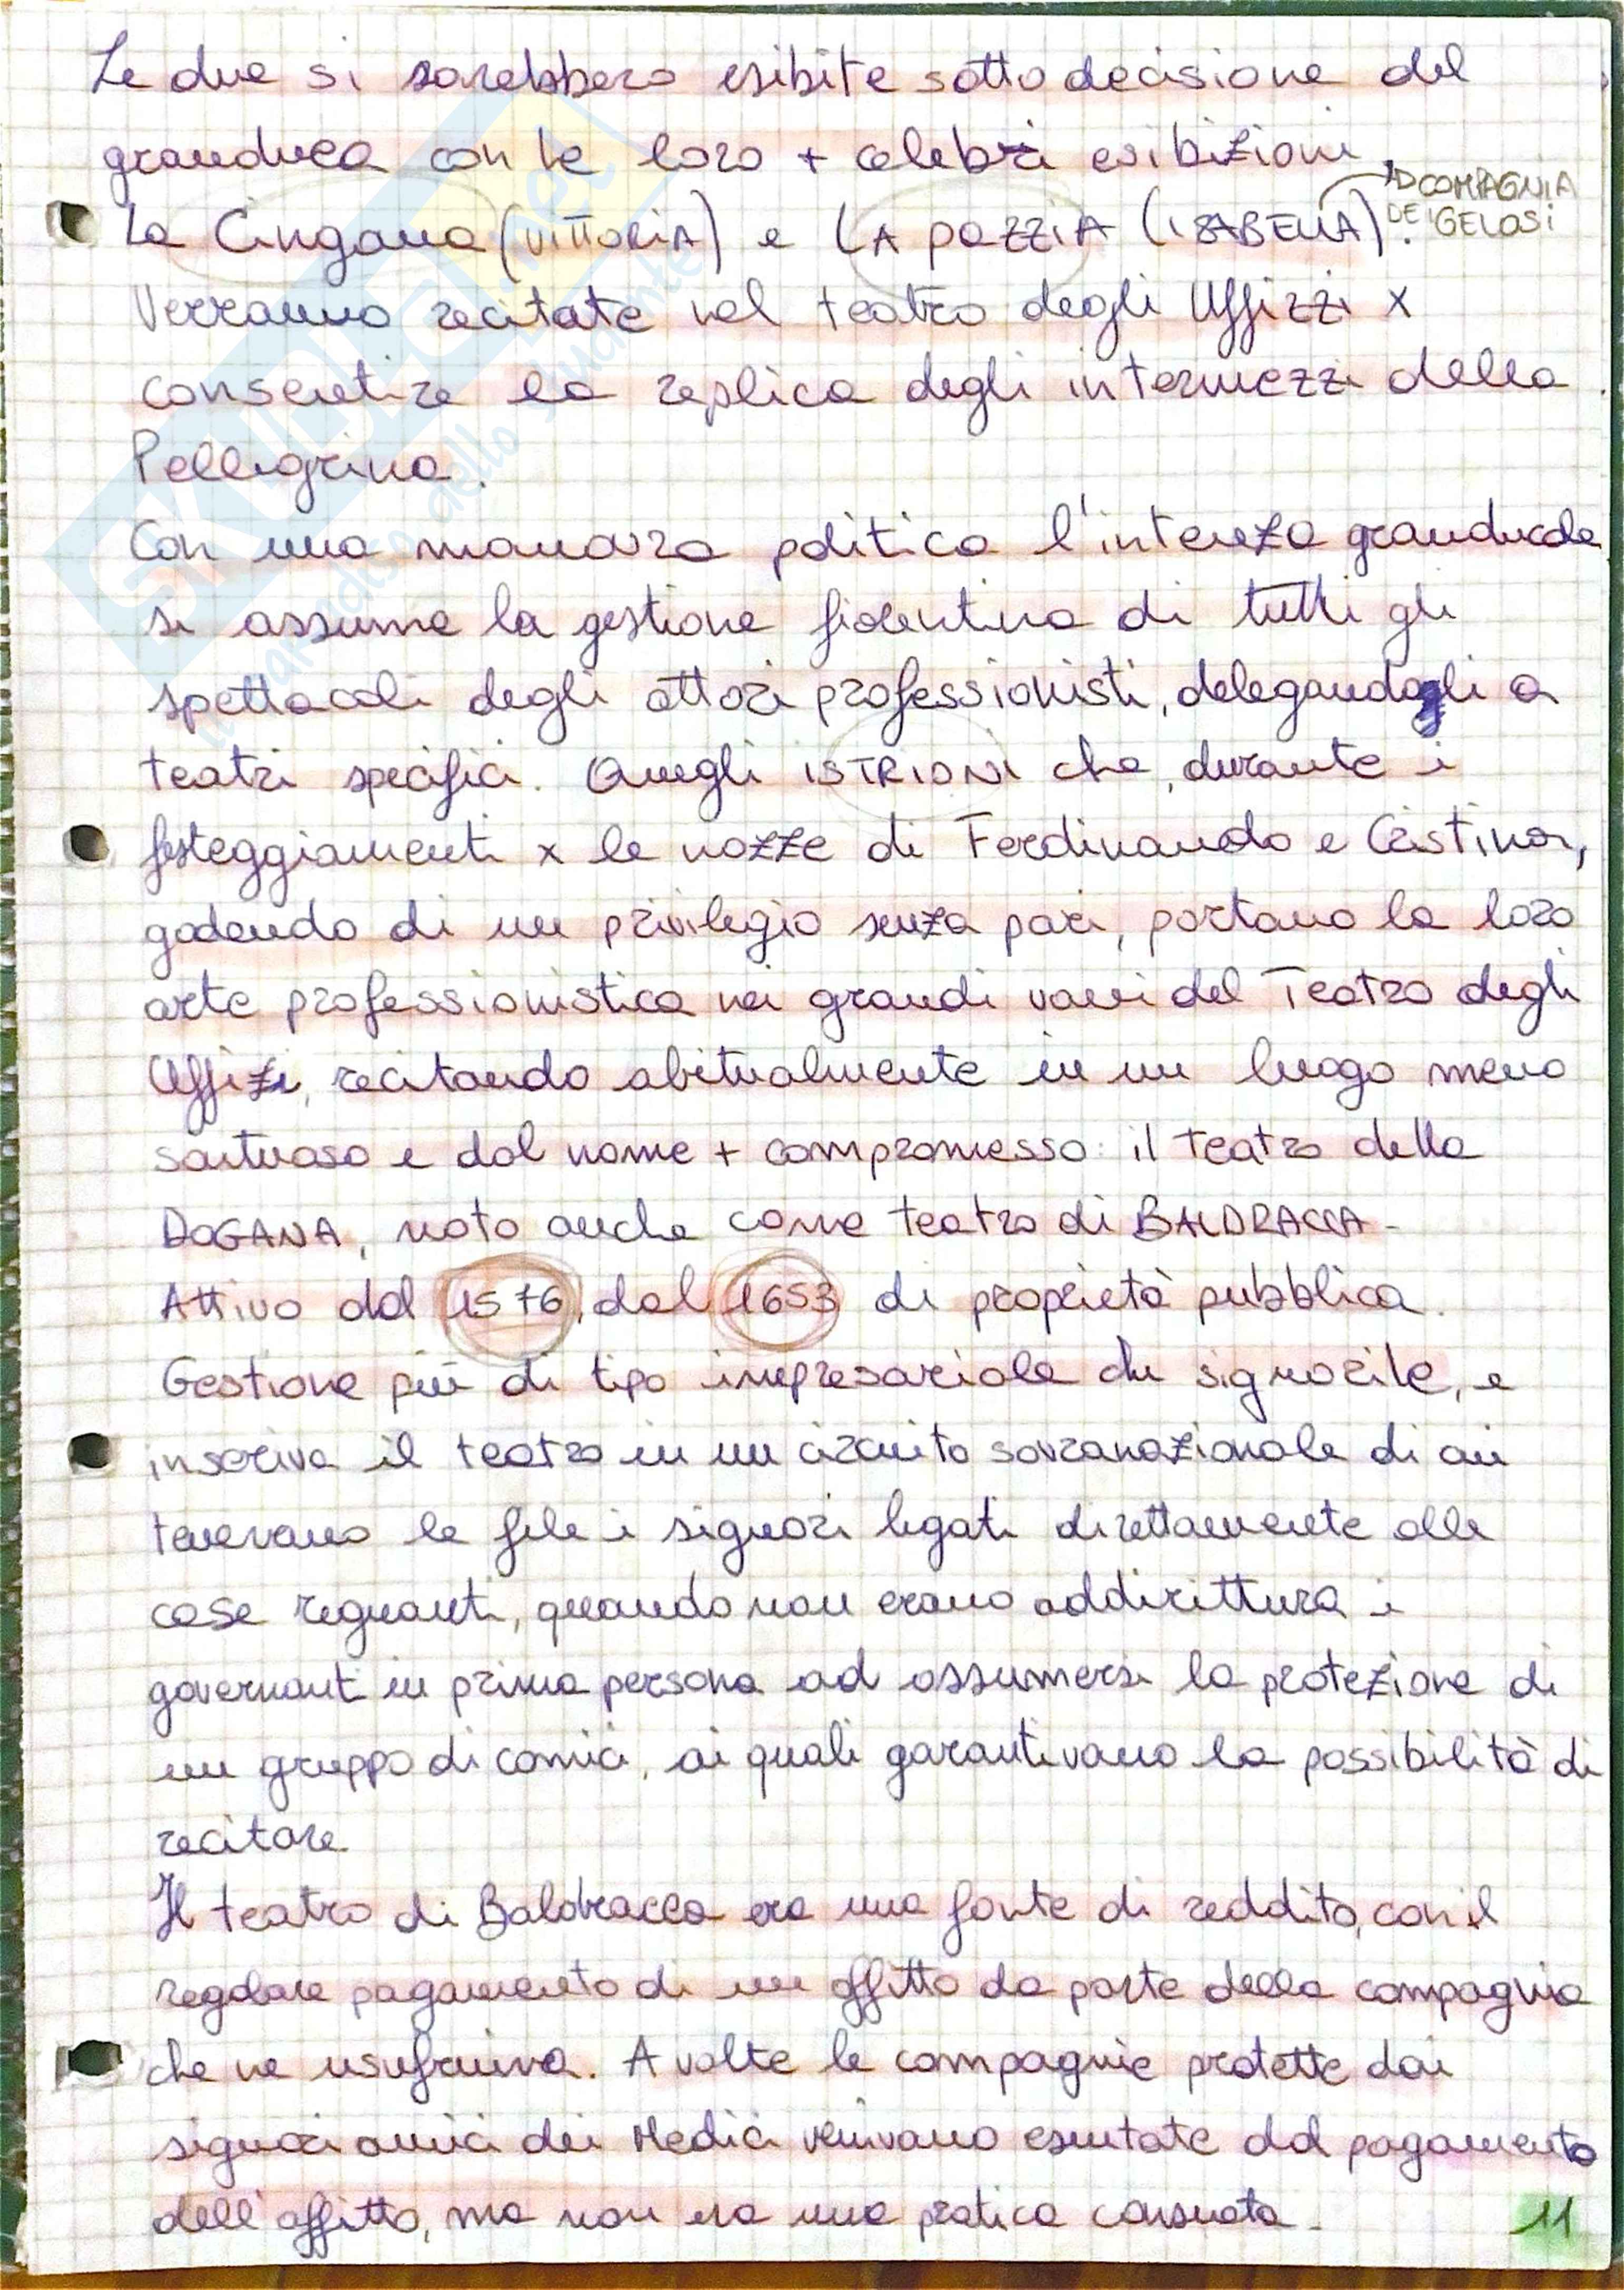 Le due si sarebbero esibite sotto decisione del
granduca con le loro + celebri esibizioni,
La Cingana (VITTORIA) e LA pazziA (ISABELLA).
COMPAGNIA
DEI GELOSI
Verranno recitate nel teatro degli Uffizzi x
consentire la replica degli intermezzi della
Pellegrina.
Con una manovra politica l'intera granducale
si assume la gestione fiorentina di tutti gli
spettacoli degli attori professionisti, delegandogli a
teatri specifici. Quegli ISTRIONI che, durante i
festeggiamenti x le nozze di Ferdinando e Cristina,
godendo di un privilegio senza pari, portano la loro
arte professionistica nei grandi vani del Teatro degli
Uffizi, recitando abitualmente in un luogo meno
sontuoso e dal nome + compromesso: il teatro della
DOGANA, noto anche come teatro di BALDRACCA-
Attivo dal 1576, dal 1653 di proprietà pubblica.
Gestione più di tipo impresariale che signorile, e
inseriva il teatro in un circuito sovranazionale di cui
tenevano le fila i signori legati direttamente alle
case regnanti, quando non erano addirittura i
governanti in prima persona ad assumersi la protezione di
un gruppo di comici, ai quali garantivano la possibilità di
recitare.
Il teatro di Baldracca era una fonte di reddito, con il
regolare pagamento di un affitto da parte della compagnia
che ne usufruiva. A volte le compagnie protette dai
signori amici dei Medici venivano esentate dal pagamento
dell'affitto, ma non era una pratica consueta.
11
SKUOLA.net
il paradiso dello studente